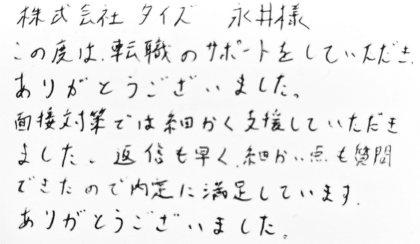 株式会社タイズ 永井様
この度は、転職のサポートをしていただき、
ありがとうございました。
面接対策では細かく支援していただき
ました。返信も早く、細かい点も質問
できたので内定に満足しています。
ありがとうございました。